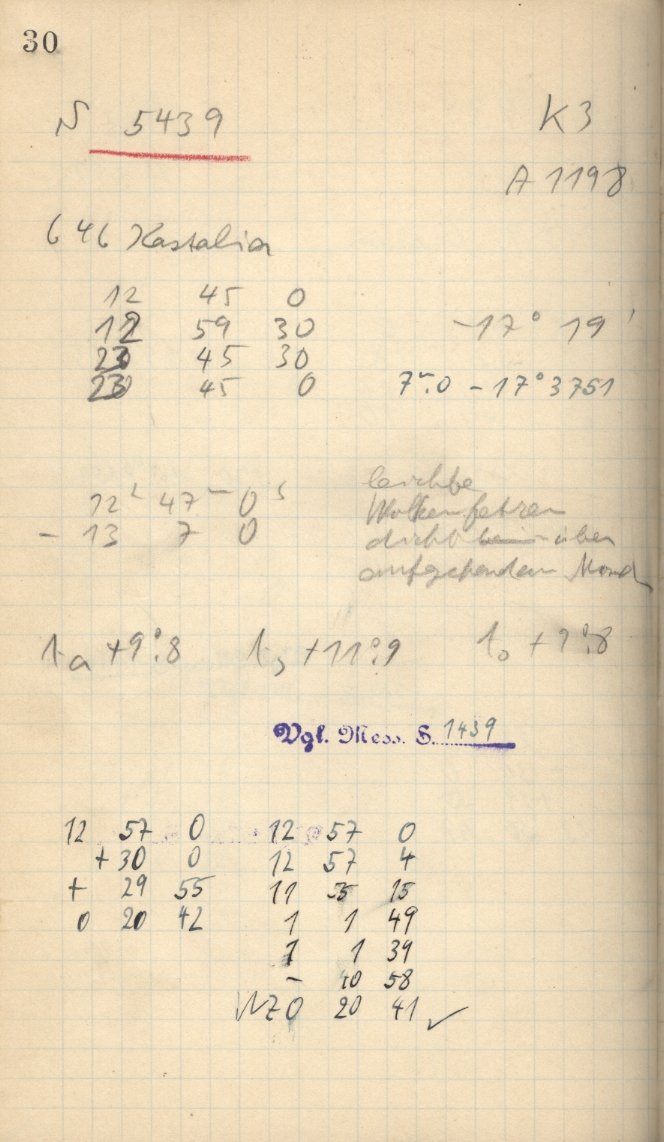 30
N 5439 K3
A 1198
646 Kastalia
12 45 0
12 59 30 -17° 19'
23 45 30
23 45 0 7ᵐ.0 -17°3751
leichte
12ʰ 47ᵐ 0ˢ Wolkenfetzen
- 13 7 0 dicht über
aufgehendem Mond
tₐ +9°.8 +11°.9 +8
Vgl. Mess. S. 1439
12 57 0 12 57 0
+30 0 12 57 4
+ 29 55 11 55 15
0 20 42 1 1 49
1 1 39
- 40 58
WZ 0 20 41 ✓